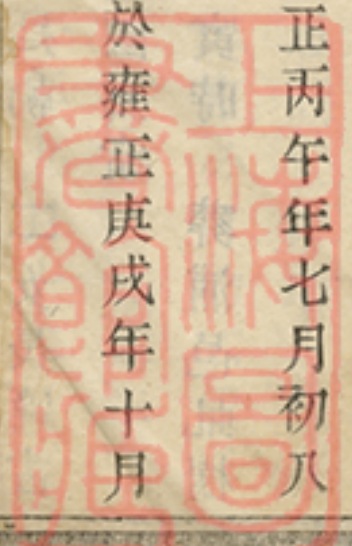 正丙午年七月初八
於雍正庚戌年十月